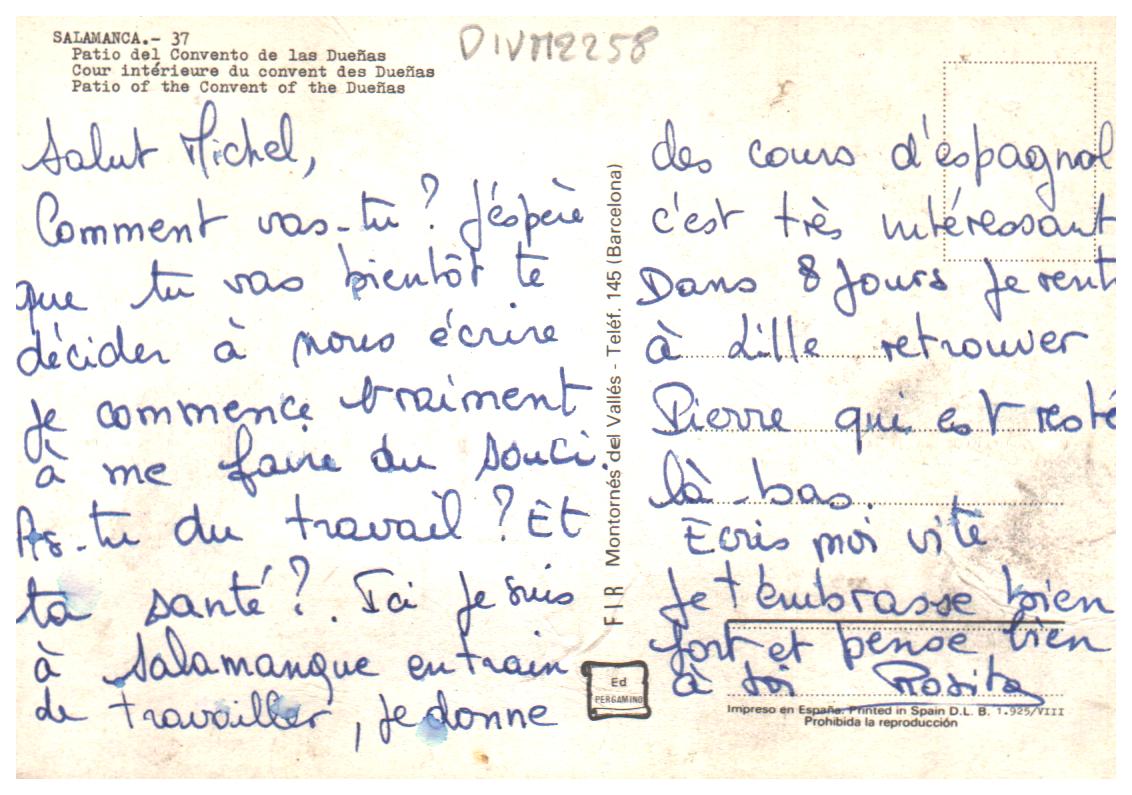 SALAMANCA.- 37
Patio del Convento de las Dueñas
Cour intérieure du convent des Dueñas
Patio of the Convent of the Dueñas
DIVM2258
Salut Michel,
Comment vas-tu ? J'éspère
que tu vas bientôt te
décider à nous écrire
je commence vraiment
à me faire du souci.
As-tu du travail ? Et
ta santé ? . Ici je suis
à Salamanque en train
de travailler, je donne
F I R Montornés del Vallés - Teléf. 145 (Barcelona)
Ed
PERGAMINO
des cours d'éspagnol
c'est très intéressant
Dans 8 jours je rent
à Lille retrouver
Pierre qui est resté
là-bas.
Ecris moi vite
Je t'émbrasse bien
fort et pense bien
à toi Rosita
Impreso en España. Printed in Spain D.L. B. 1.925/VIII
Prohibida la reproducción